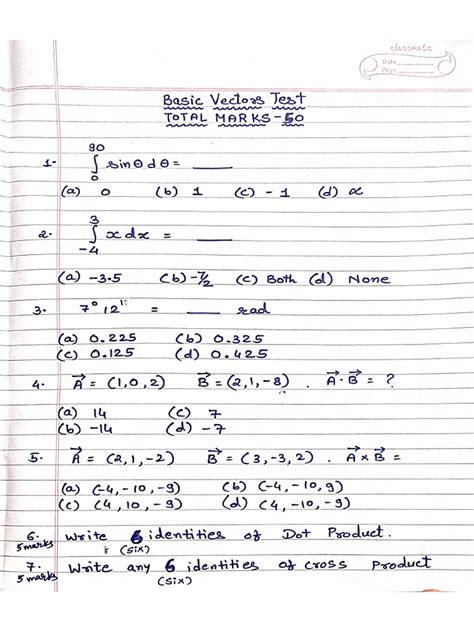 classmate
Date
Page
Basic Vectors Test
TOTAL MARKS - 50
1- ∫₀⁹⁰ sinθ dθ = ____
(a) 0 (b) 1 (c) -1 (d) ∝
2- ∫₋₄³ x dx = ____
(a) -3.5 (b) -7/2 (c) Both (d) None
3. 7° 12' = ____ rad
(a) 0.225 (b) 0.325
(c) 0.125 (d) 0.425
4. A⃗ = (1,0,2) B⃗ = (2,1,-8) . A⃗·B⃗ = ?
(a) 14 (c) 7
(b) -14 (d) -7
5. A⃗ = (2,1,-2) B⃗ = (3,-3,2) . A⃗ × B⃗ =
(a) (-4,-10,-9) (b) (-4,-10,9)
(c) (4,10,-9) (d) (4,-10,-9)
6. Write 6 identities of Dot Product.
5 marks (six)
7. Write any 6 identities of cross Product
5 marks (six)